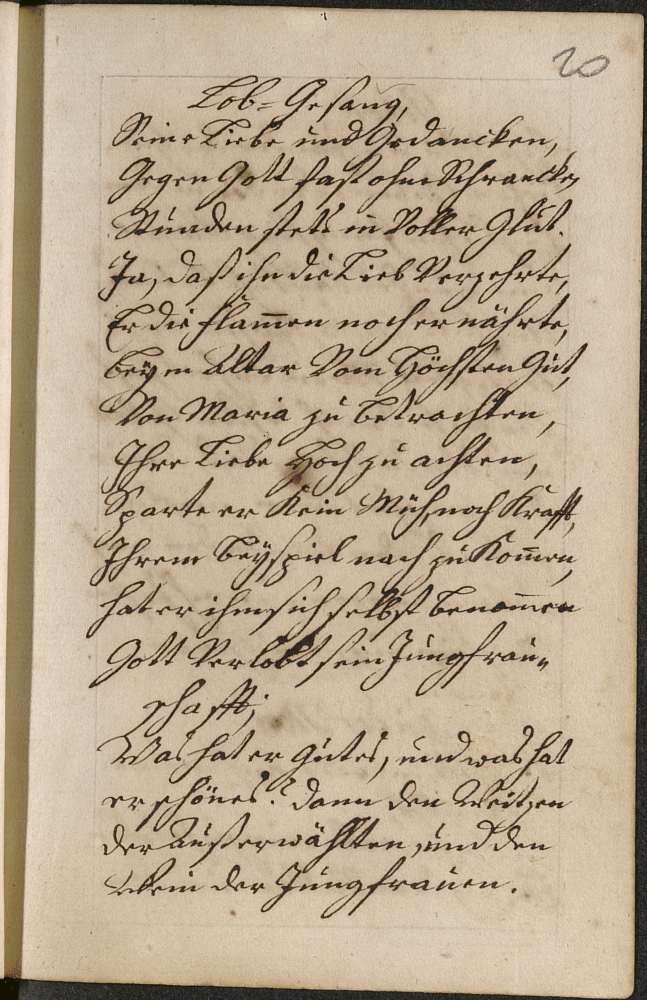 20
Lob-Gesang,
Seine Liebe und Gedancken,
Gegen Gott fast ohne Schrancken
Stunden stets in Voller Glut.
Ja, daß ihn die Lieb Verzehrte,
Er die flam̅en noch ernährte,
beÿm Altar Vom Höchsten Gut,
Von Maria zu betrachten,
Ihre Liebe Hoch zu achten,
Sparte er Kein Müh, noch Krafft,
Ihrem beÿspiel nach zu Kom̅en,
hat er ihm sich selbst benom̅en
Gott Verlobt sein Jungfrau-
schafft;
Was hat er gutes, und was hat
er schönes? dann den Weitzen
der Außerwählten, und den
Wein der Jungfrauen.